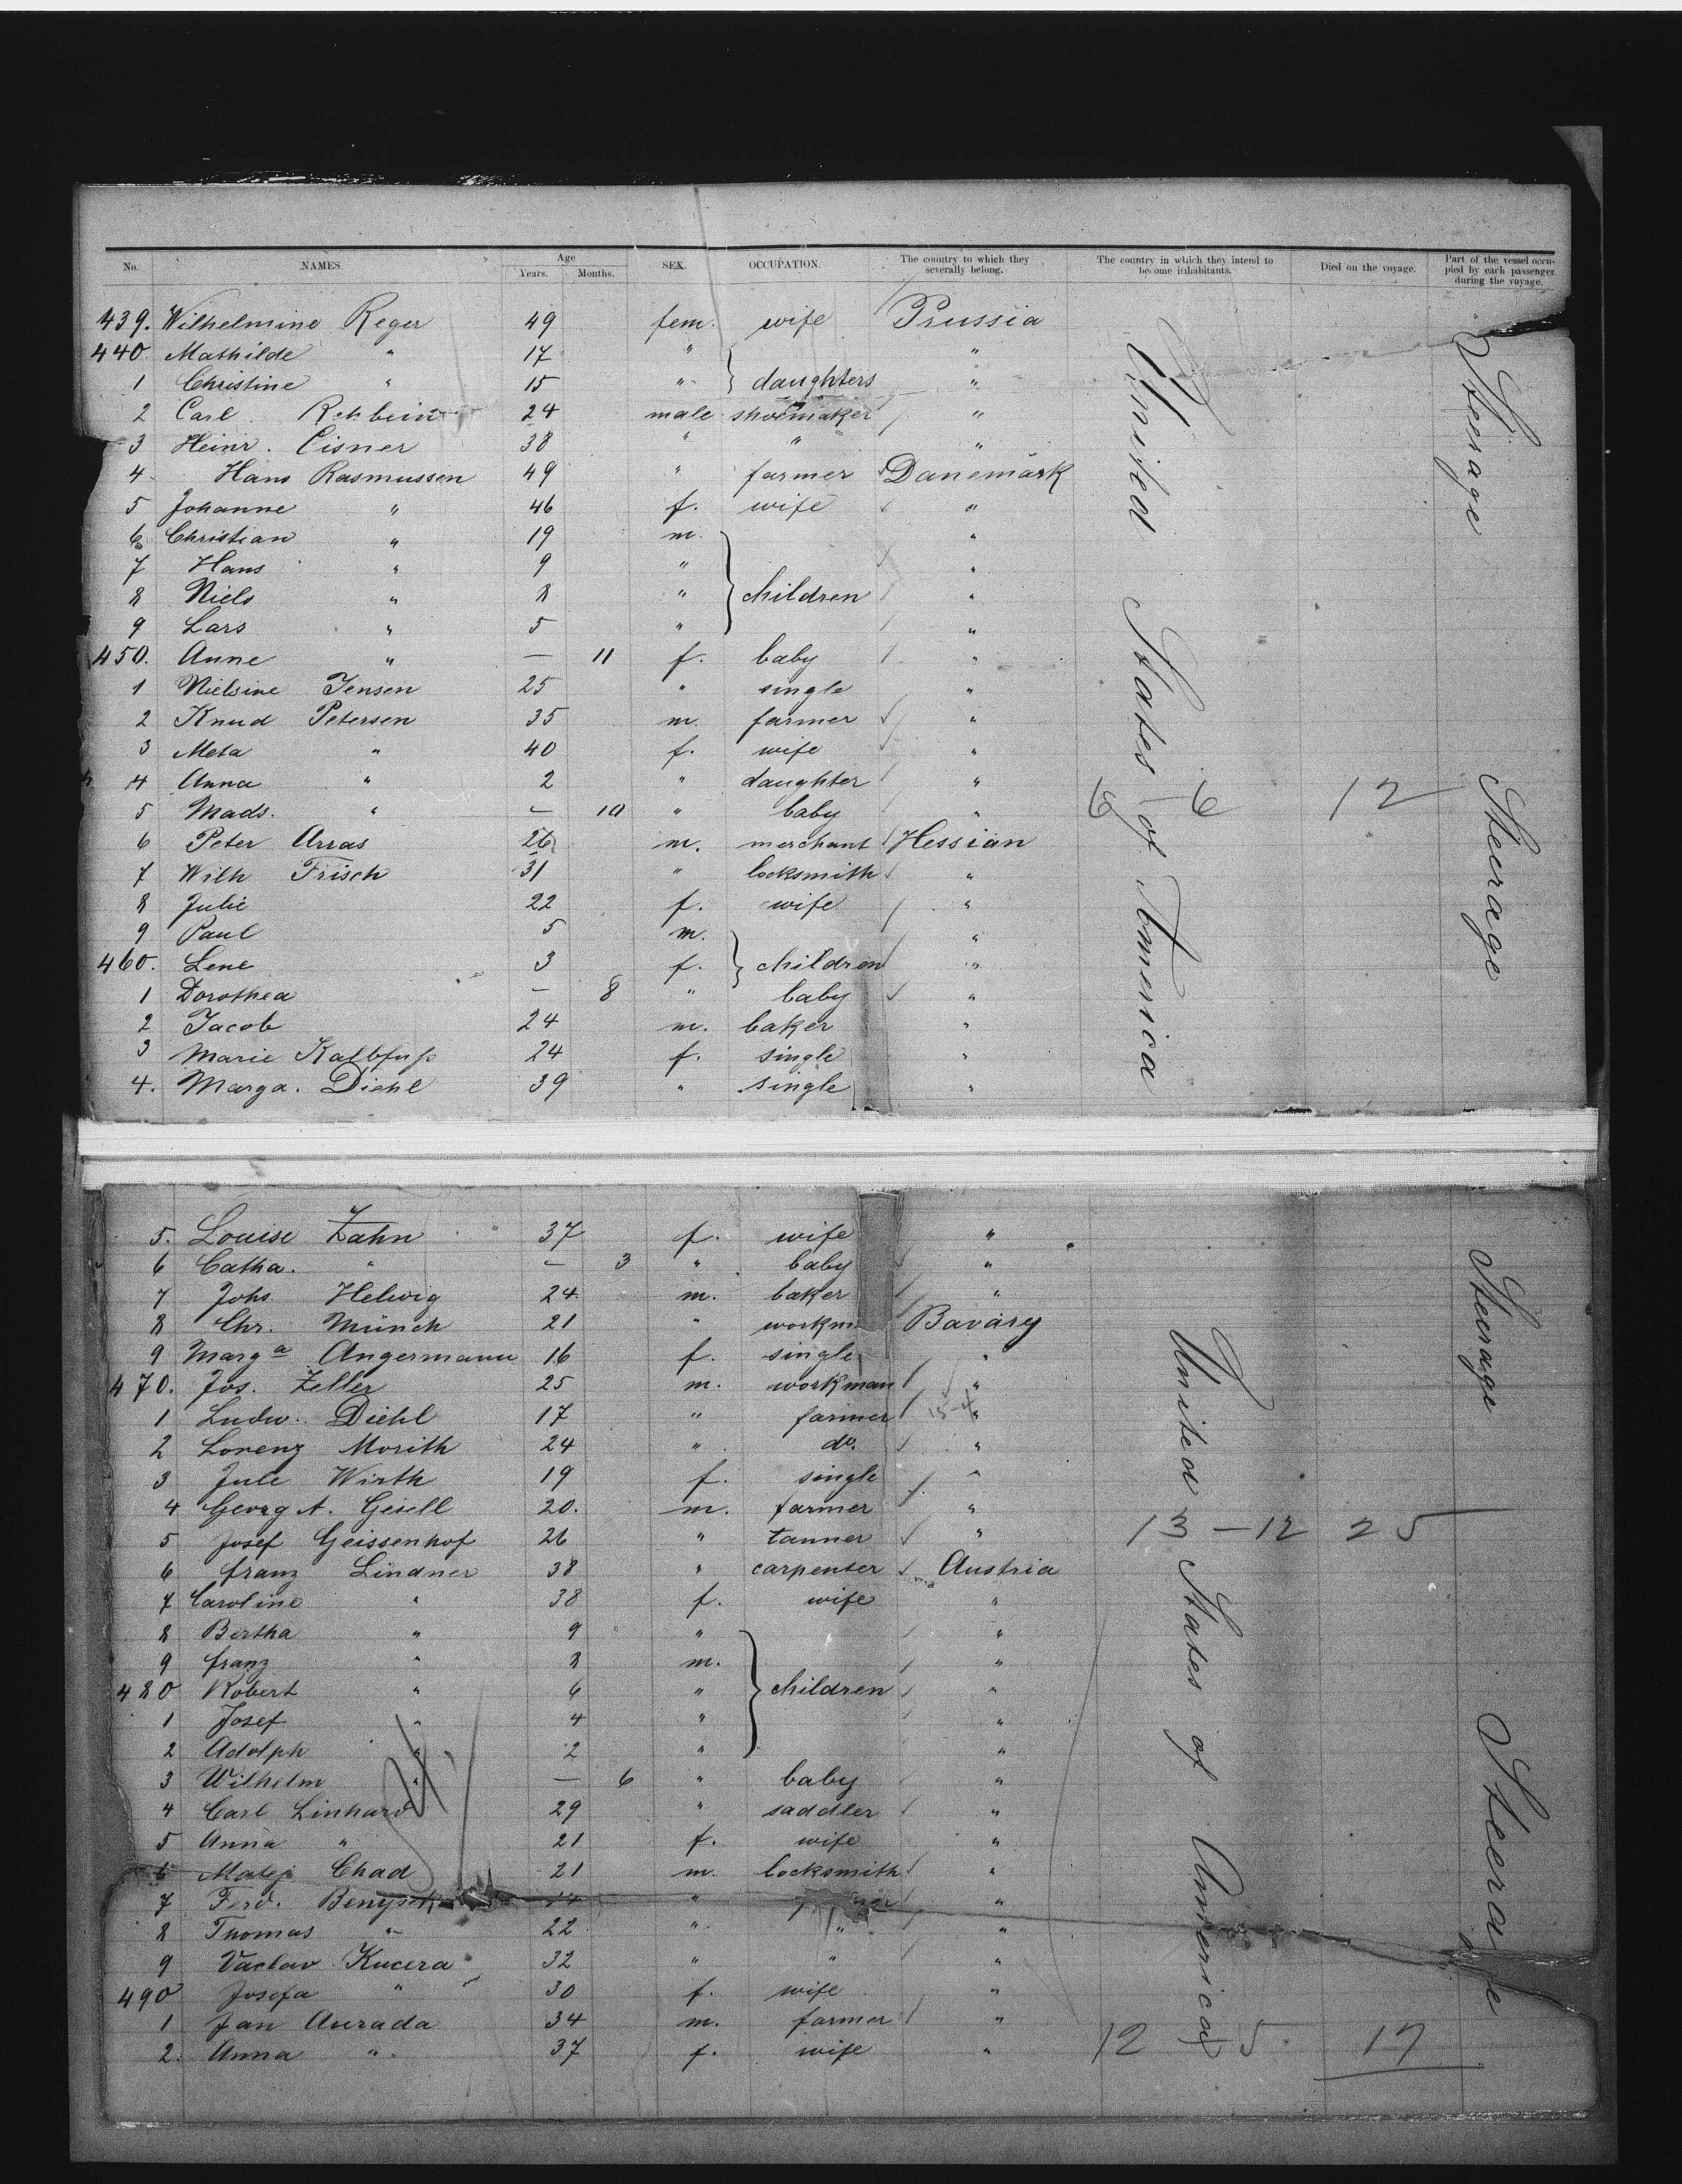 No. NAMES. Age Years. Months. SEX. OCCUPATION. The country to which they severally belong. The country in which they intend to become inhabitants. Died on the voyage. Part of the vessel occupied by each passenger during the voyage.
439. Wilhelmine Reger 49 fem. wife Prussia
440. Mathilde " 17 " "
1 Christine " 15 " } daughters "
2 Carl Rehbein 24 male shoemaker "
3 Heinr. Eisner 38 " " "
4 Hans Rasmussen 49 " farmer Danemark
5 Johanne " 46 f. wife "
6 Christian " 19 m. "
7 Hans " 9 " "
8 Niels " 8 " } children "
9 Lars " 5 " "
450. Anne " — 11 f. baby "
1 Nielsine Jensen 25 " single "
2 Knud Petersen 35 m. farmer "
3 Meta " 40 f. wife "
4 Anna " 2 " daughter "
5 Mads. " — 10 " baby " 6 - 6 12
6 Peter Arras 26 m. merchant Hessian
7 Wilh Frisch 31 " locksmith "
8 Julie 22 f. wife "
9 Paul 5 m. "
460. Lene 3 f. } children "
1 Dorothea — 8 " baby "
2 Jacob 24 m. baker "
3 Marie Kalbfuß 24 f. single "
4. Marga. Diehl 39 " single "
United States of America
Steerage
Steerage
5. Louise Zahn 37 f. wife "
6 Catha. " — 3 " baby "
7 Johs. Helwig 24 m. baker "
8 Chr. Münch 21 " workm Bavary
9 Marga Angermann 16 f. single "
470. Jos. Zeller 25 m. workman "
1 Ludw. Diehl 17 " farmer "
2 Lorenz Morith 24 " do. "
3 Jule Wirth 19 f. single "
4 Georg A. Gesell 20. m. farmer "
5 Josef Geissenhof 26 " tanner " 13 - 12 25
6 franz Lindner 38 " carpenter Austria
7 Caroline " 38 f. wife "
8 Bertha " 9 " "
9 franz " 8 m. "
480 Robert " 6 " } children "
1 Josef " 4 " "
2 Adolph " 2 " "
3 Wilhelm " — 6 " baby "
4 Carl Linhard 29 " saddler "
5 Anna " 21 f. wife "
6 Matej Chad 21 m. locksmith "
7 Ferd. " "
8 Thomas " 22 " " "
9 Vaclav Kucera 32 " " "
490 Josefa " 30 f. wife "
1 Jan Aurada 34 m. farmer "
2. Anna " 37 f. wife " 12 5 17
United States of America
Steerage
Steerage